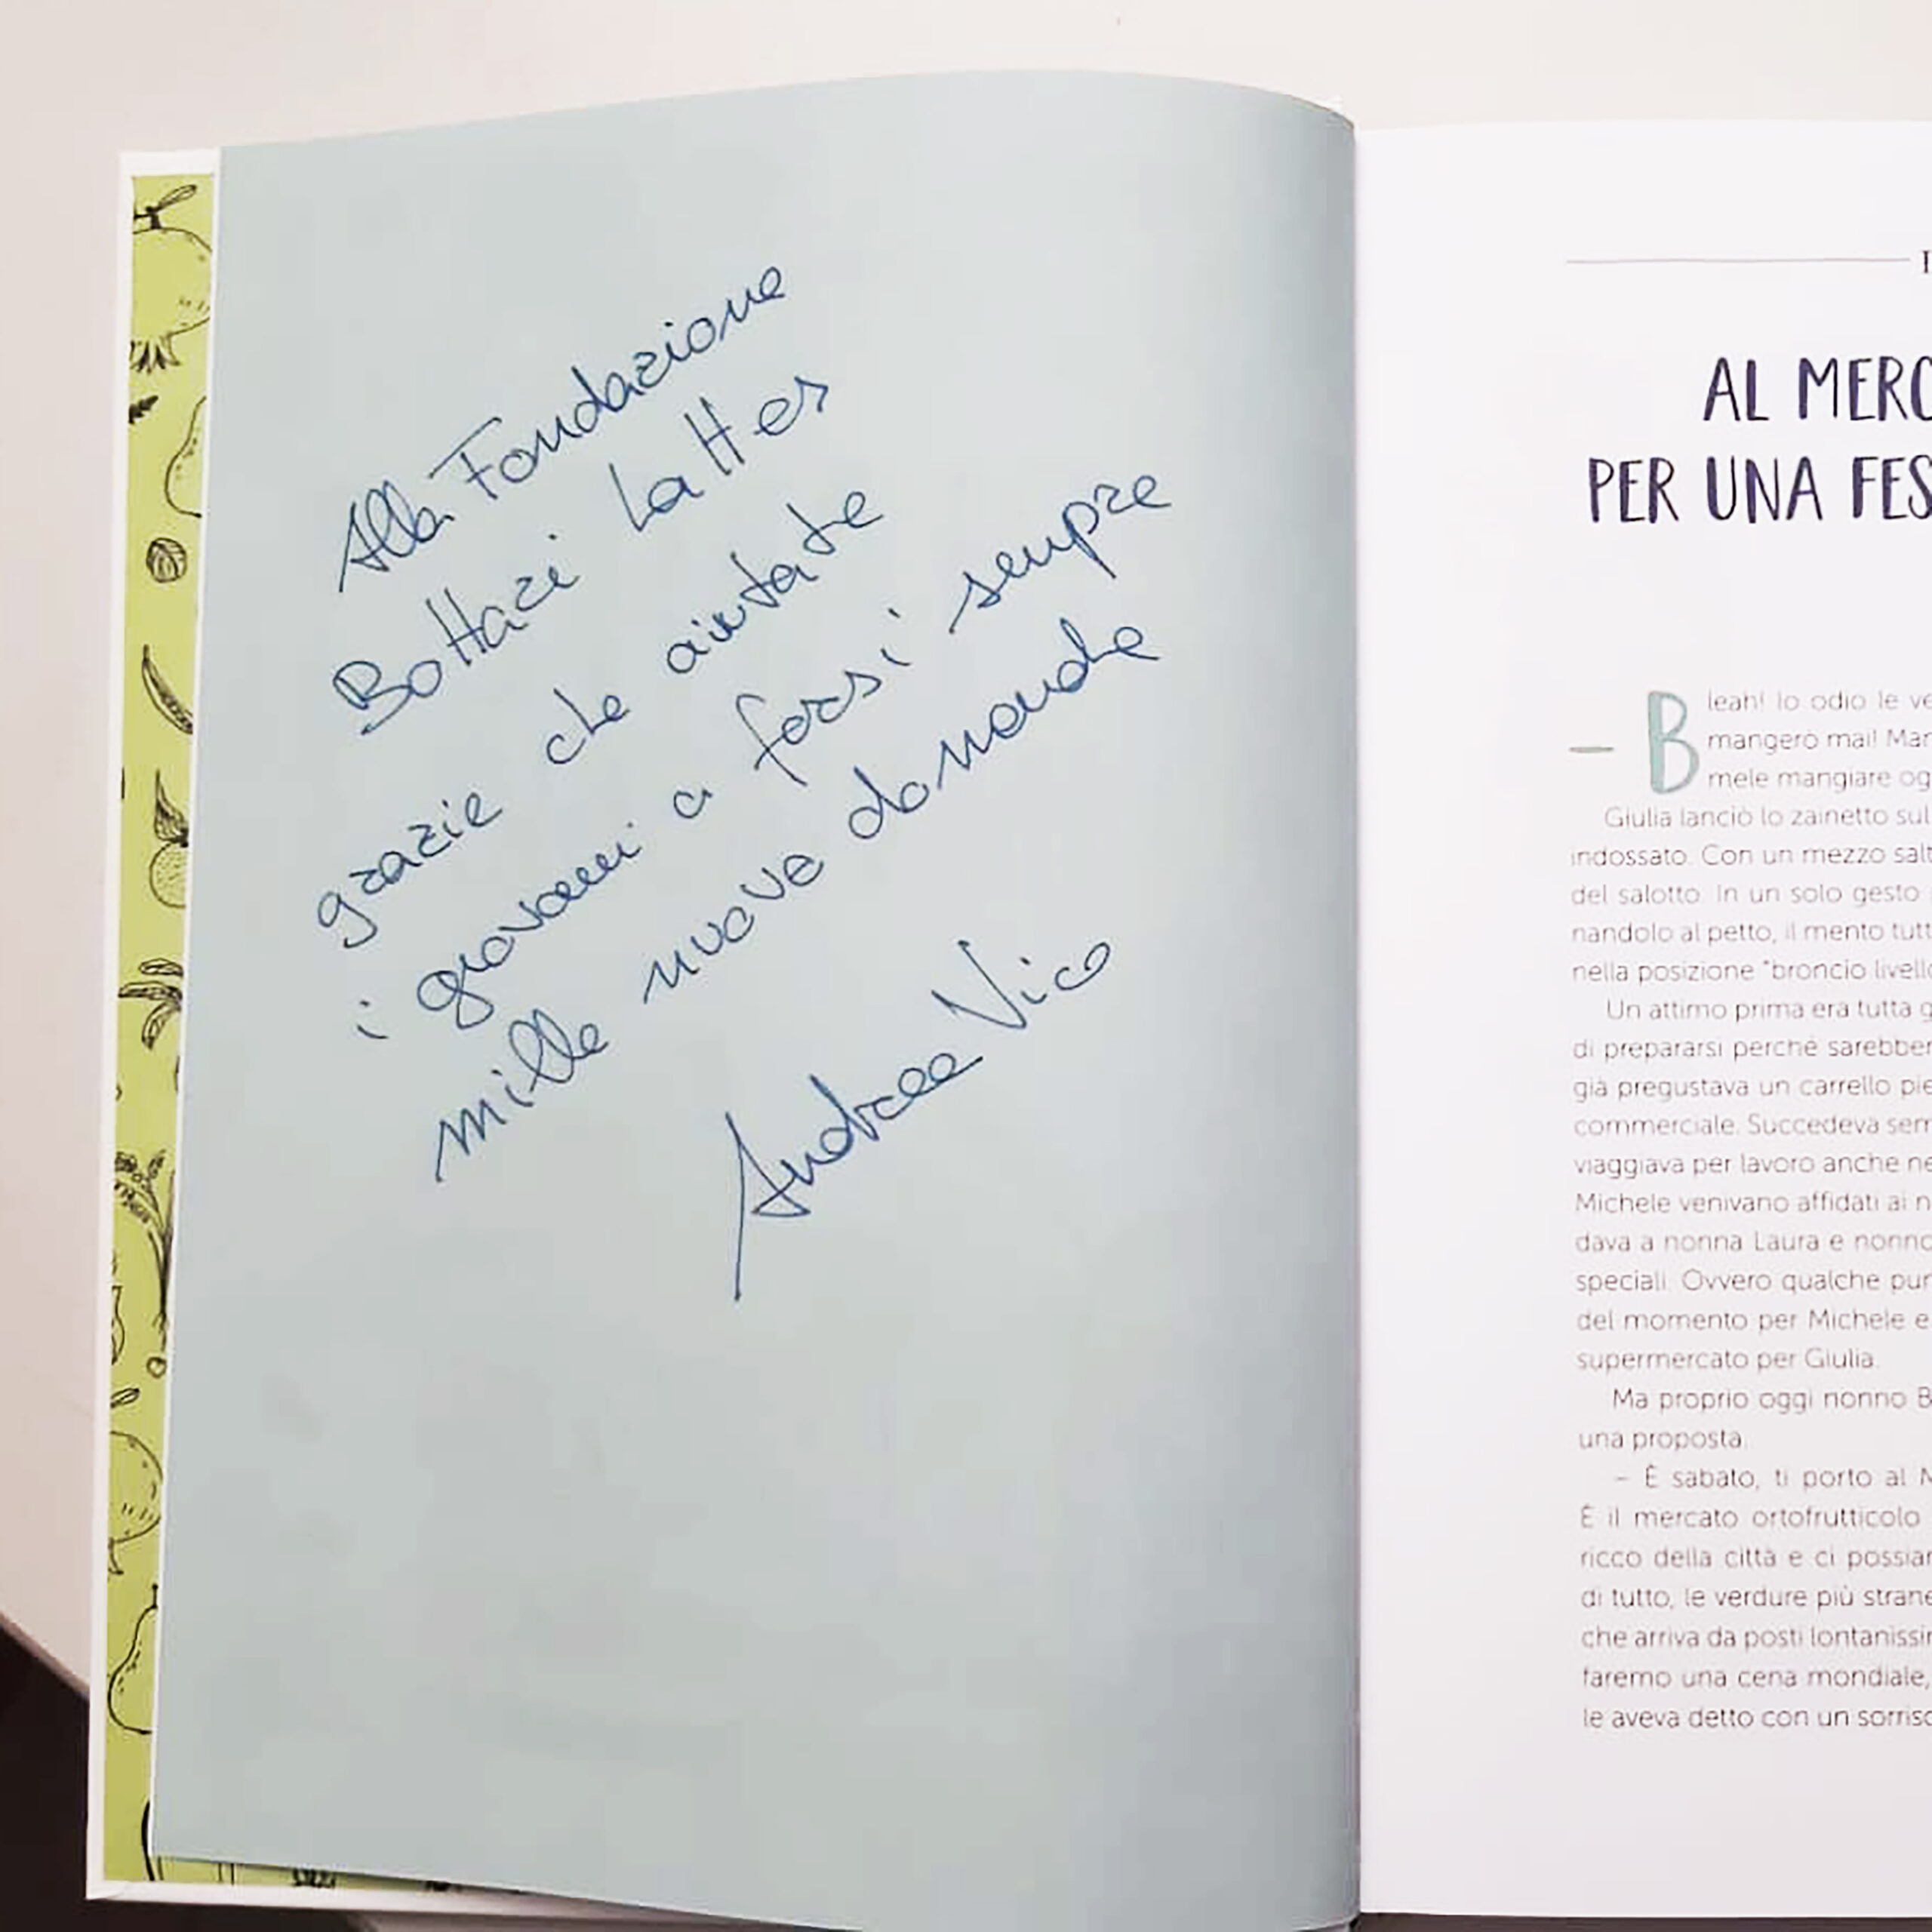 Alla Fondazione
Bottari Lattes
grazie che aiutate
i giovani a farsi sempre
mille nuove domande
Andrea Vico
AL MERC
PER UNA FES
– Bleah! Io odio le ve
mangerò mai! Mar
mele mangiare og
Giulia lanciò lo zainetto sul
indossato. Con un mezzo salt
del salotto. In un solo gesto
nandolo al petto, il mento tutt
nella posizione "broncio livello
Un attimo prima era tutta g
di prepararsi perché sarebber
già pregustava un carrello pie
commerciale. Succedeva sem
viaggiava per lavoro anche ne
Michele venivano affidati ai n
dava a nonna Laura e nonno
speciali. Ovvero qualche pun
del momento per Michele e
supermercato per Giulia.
Ma proprio oggi nonno B
una proposta.
– È sabato, ti porto al M
È il mercato ortofrutticolo
ricco della città e ci possiam
di tutto, le verdure più strane
che arriva da posti lontanissim
faremo una cena mondiale,
le aveva detto con un sorriso